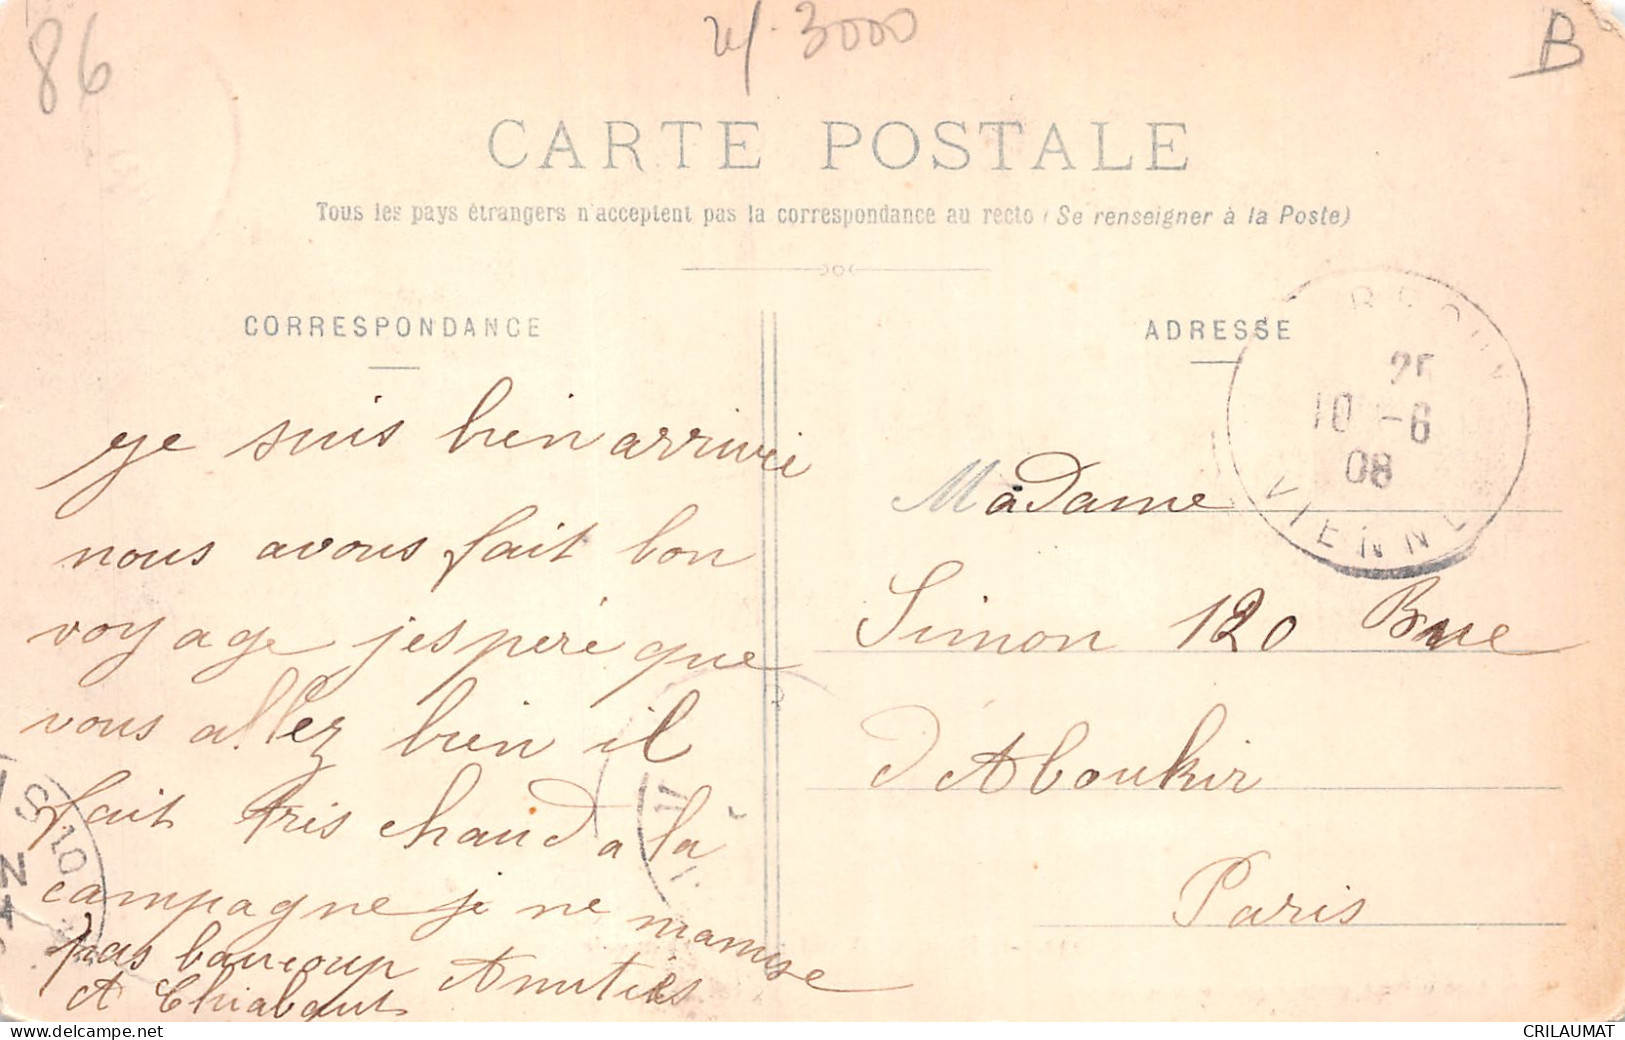 86
3000
B
CARTE POSTALE
Tous les pays étrangers n'acceptent pas la correspondance au recto (Se renseigner à la Poste)
CORRESPONDANCE
ADRESSE
je suis bien arrivée
nous avons fait bon
voyage j'espère que
vous allez bien il
fait tris chaud a la
campagne je ne mamuse
pas baucoup Amitiés
A Thiabaut
Madame
Simon 120 Rue
d Aboukir
Paris
25
10 -6
08
VIENNE
www.delcampe.net
CRILAUMAT